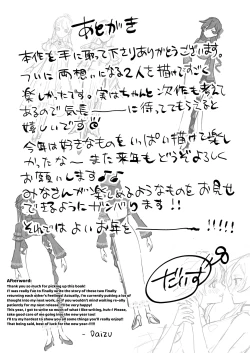 あとがき
本作を手に取って下さりありがとうございます。
ついに両想いになる2人を描けてすごく
楽しかったです。実はちゃんと次作も考えて
あるので気長───に待っててもらえると
嬉しいです
今年は好きなものをいっぱい描けて楽し
かったな〜 また来年もどうぞよろしく
お願いします♪♪
みなさんが喜んでくれるようなものをお見せ
できるようにガンバります!!
それでは よいお年を〜
だいず
Afterword:
Thank you so much for picking up this book!
It was really fun to finally write the story of these two finally
returning each other's feelings! Actually, I'm currently putting a lot of
thought into my next work, so if you wouldn't mind waiting re-ally
patiently for my next release... I'll be very happy!
This year, I got to write so much of what I like writing, but oh! Please,
take good care of me going into the new year too!
I'll try my hardest to show you all some things you'll really enjoy!!
That being said, best of luck for the new year~!!!!
- Daizu